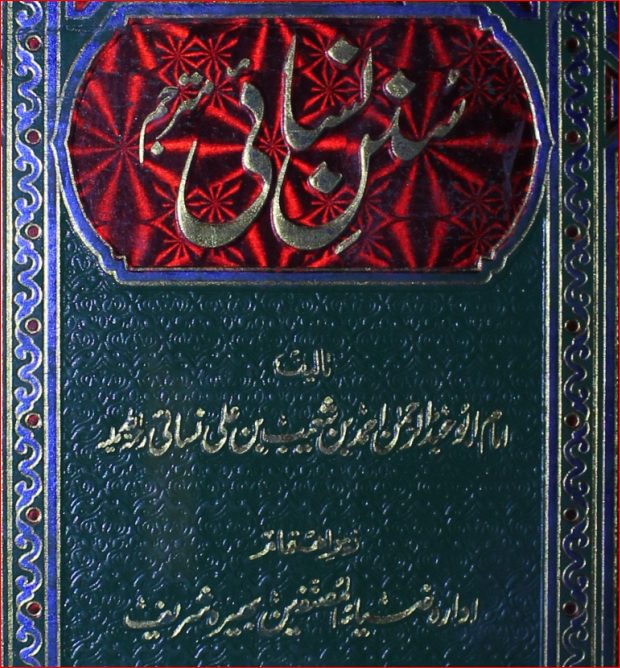 سُننِ نسائی مترجم
تالیف
امام ابو عبدالرحمٰن احمد بن شعیب بن علی نسائی رحمۃ اللہ علیہ
زیر اہتمام
ادارہ ضیاء المصنفین بھیرہ شریف